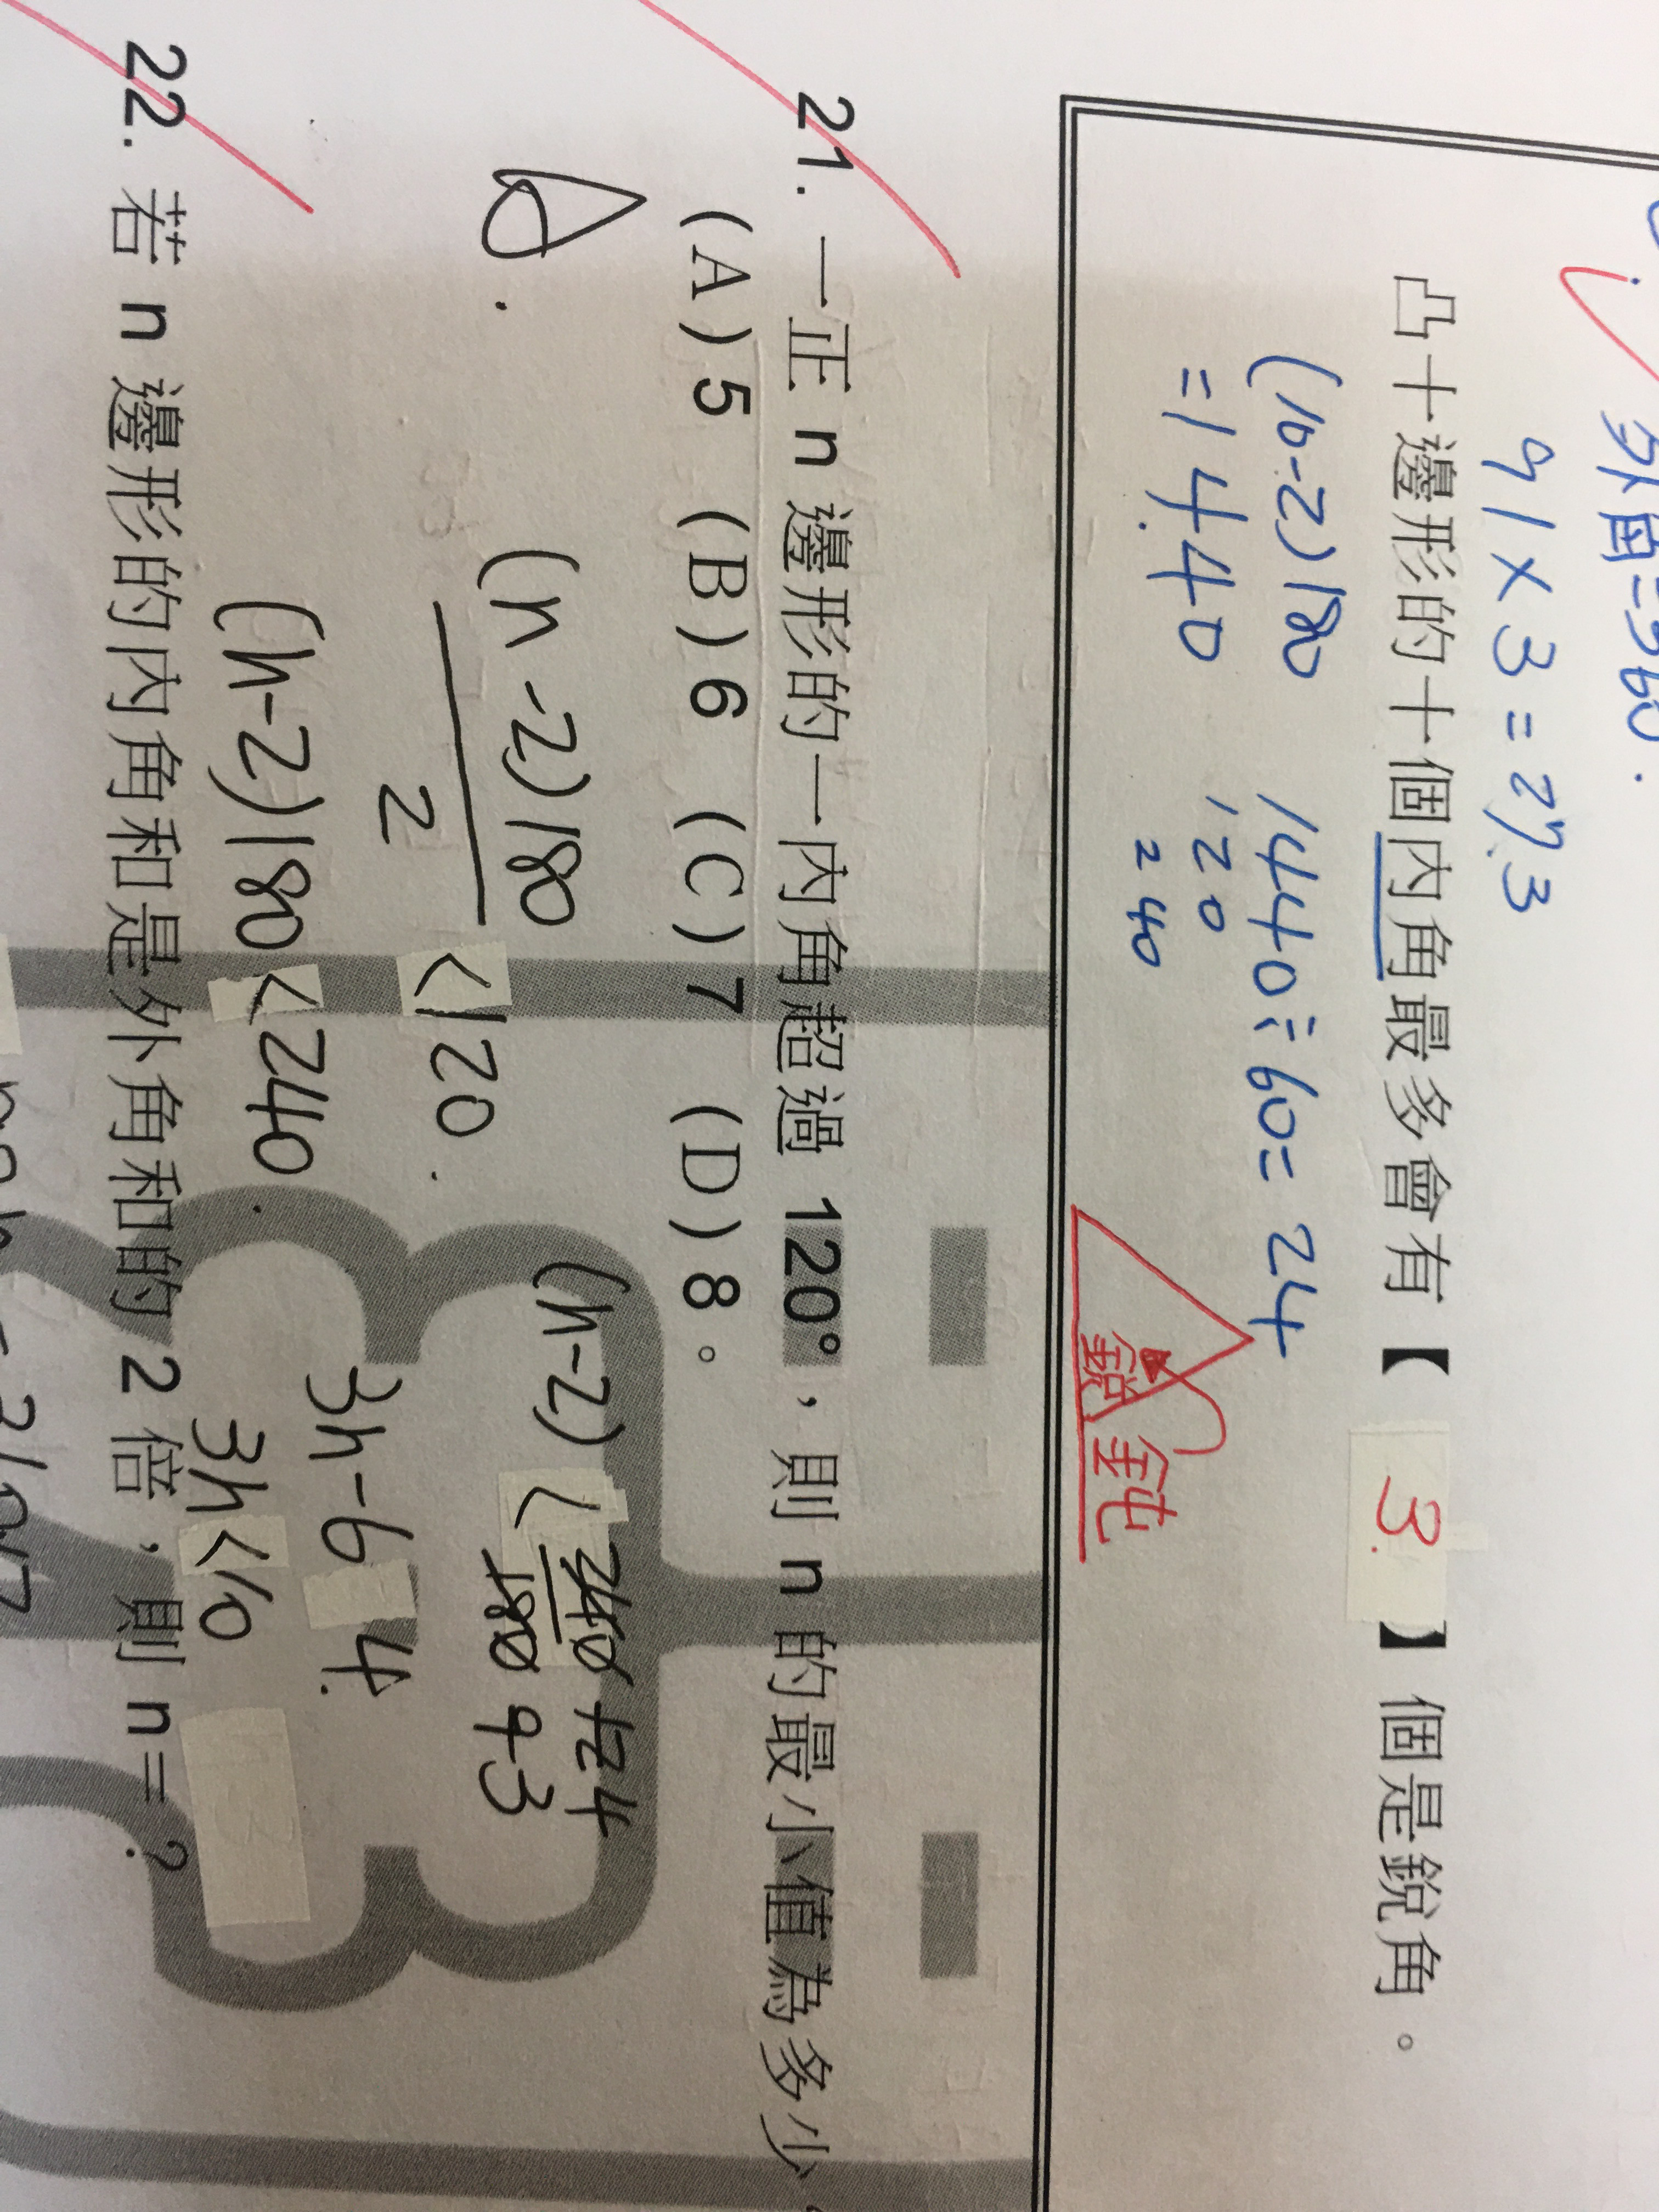 外角=360.
91×3=273
凸十邊形的十個內角最多會有【 3. 】個是銳角。
(10-2)180 1440÷60=24
=1440 120
240
銳 鈍
21. 一正 n 邊形的一內角超過 120°，則 n 的最小值為多少
(A)5 (B)6 (C)7 (D)8。
(n-2)180
2
<120.
(n-2)180<240.
(n-2)<
240
180
4
3
3n-6 4.
3n<10
22. 若 n 邊形的內角和是外角和的 2 倍，則 n=?